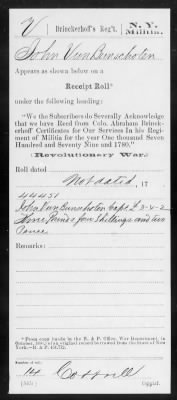 V Brinckerhoff's Reg't. N. Y. Militia.
John Van Bunschoten
Appears as shown below on a
Receipt Roll*
under the following heading:
"We the Subscribers do Severally Acknowledge
that we have Recd from Colo. Abraham Brinck-
erhoff Certificates for Our Services In his Regi-
ment of Militia for the year One thousand Seven
Hundred and Seventy Nine and 1780."
(Revolutionary War.)
Roll dated
Not dated, 17
44451
John Van Bunnhoten Capt £ 3-4-2
Three Pounds four Shillings and two
Pence
Remarks:
*From copy made in the R. & P. Office, War Department, in
of an original record borrowed from the State of
New York.—R. & P.
Number of roll:
14
Copyist.